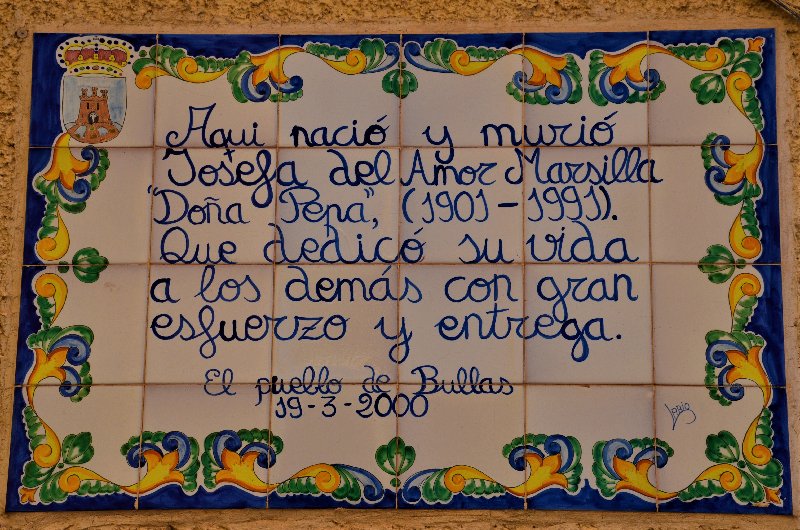 Aqui nació y murió
Josefa del Amor Marsilla
"Doña Pepa", (1901-1991).
Que dedicó su vida
a los demás con gran
esfuerzo y entrega.
El pueblo de Bullas
19-3-2000